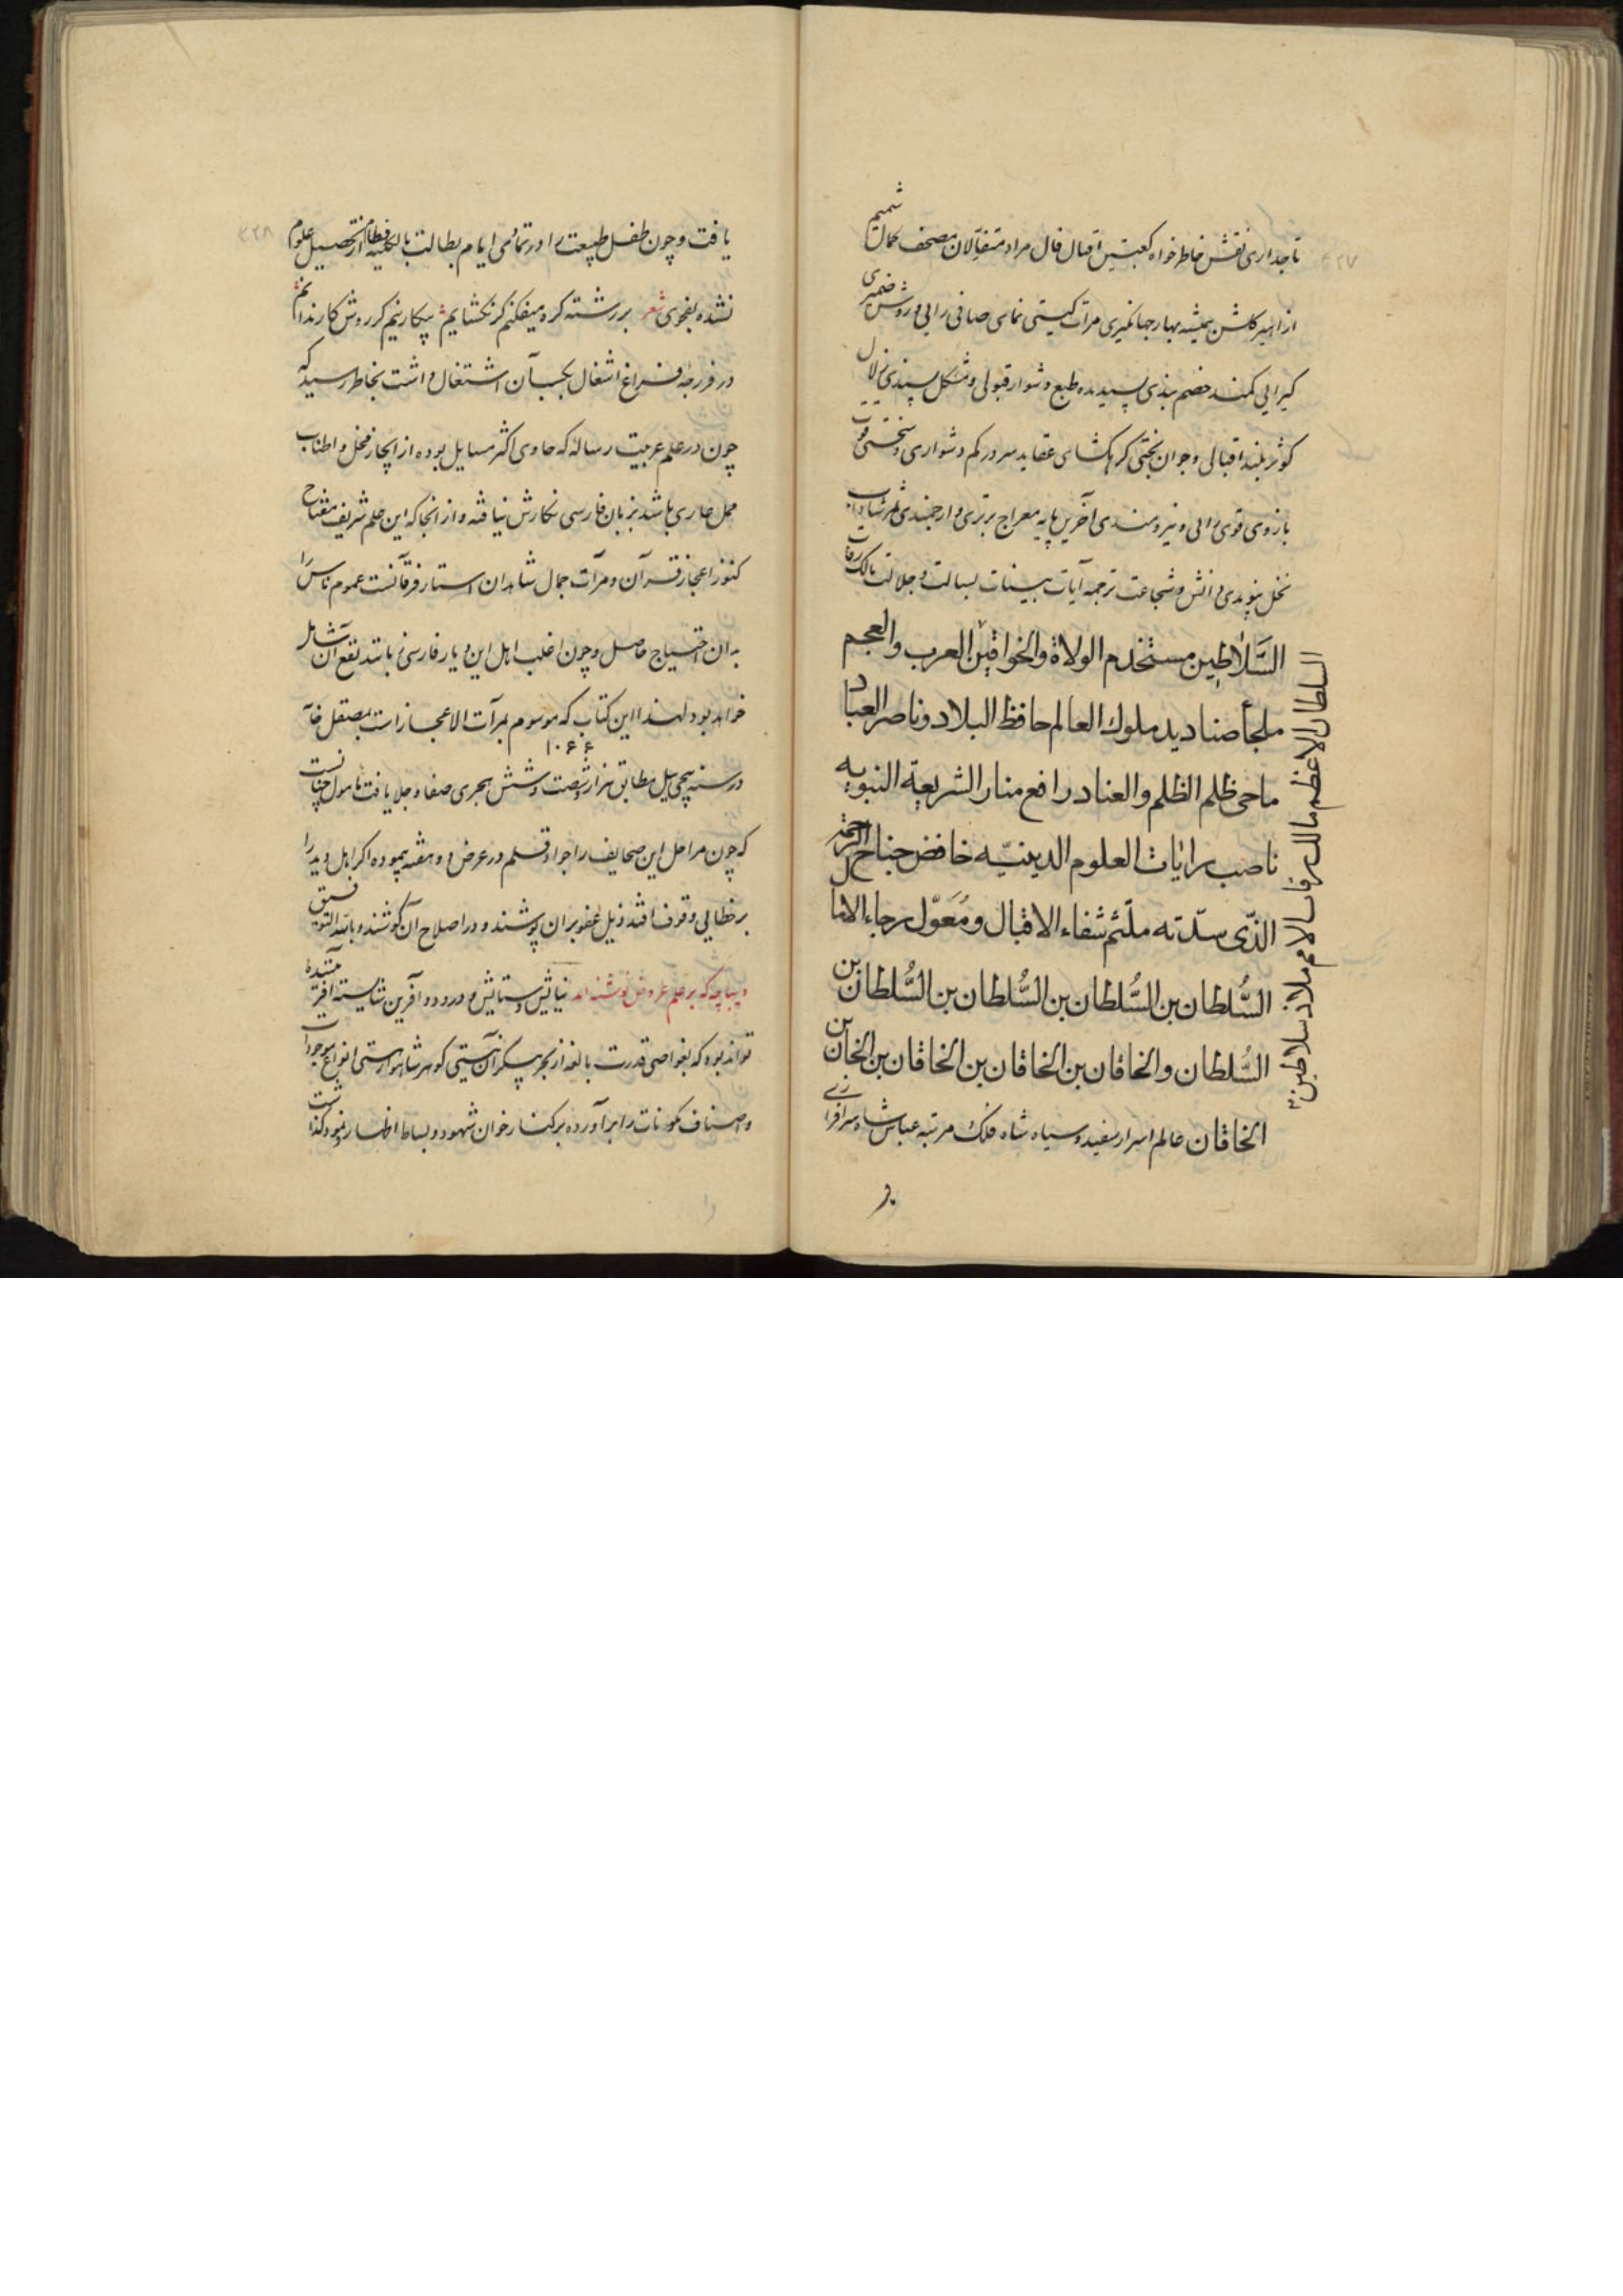 تاجداری نقش خاطر خواه کعبتین اقبال فال مراد متفألان مصحف کمال شمیم
ازاهیر کلشن همیشه بهار جهانکیری مرآت کیتی نمای صافی رایی و روشن ضمیری
کیرایی کمند خصم بندی پسندیده طبع دشوار قبولی و مشکل پسندی زلال
کوثر بلند اقبالی و جوان بختی کره کشای عقاید سر در کم دشواری و سختی قوت
بازوی قوی دلی و نیرومندی آخرین پایه معراج برتری و ارجمندی ثمر شاداب
نخل پیوندی دانش و شجاعت ترجمه آیات بینات بسالت و جلالت مالک رقاب
السَّلاطین مستخدم الولاة والخواقین العرب والعجم
ملجأ صنادید ملوك العالم حافظ البلاد و ناصر العباد
ماحی ظلم الظلم والعناد رافع منار الشریعة النبویه
ناصب رایات العلوم الدینیّه خافض جناح الرحمة
الذّی سدّته ملثم شفاء الاقبال و مُعَوّل رجاء الاما
السُّلطان بن السُّلطان بن السُّلطان بن السُّلطان بن
السُّلطان والخاقان بن الخاقان بن الخاقان بن الخاقان بن
الخاقان عالم اسرار سفید و سیاه شاه فلك مرتبه عباس شاه سرافرازی
السلطان الاعظم مالك رقاب الامم ملاذ سلاطین
۴۲۷
یافت و چون طفل طبیعت را در تمامی ایام بطالت بالکلیه فطام از تحصیل علوم
نشده بفحوی شعر بر رشته کره میفکنم کر نکشایم بیکار نیم کر روش کار ندانم
در فرجه فراغ اشغال بکسب آن اشتغال داشت بخاطر رسید که
چون در علم عربیت رساله که حاوی اکثر مسایل بوده از ایجاز مخل و اطناب
ممل عاری باشد بزبان فارسی نکارش نیافته و از انجا که این علم شریف مفتاح
کنوز اعجاز قرآن و مرآت جمال شاهدان استار فرقانست عموم ناس را
به ان احتیاج حاصل و چون اغلب اهل این دیار فارسی زبانند نفع آن شامل
خواهد بود لهذا این کتاب که موسوم بمرآت الاعجاز است بمصقل
۱۰۶۶
در سنه پیچی ییل مطابق هزار و شصت و شش هجری صفا و جلا یافت مامول چنانست
که چون مراحل این صحایف را جواد قلم در عرض دو هفته پیموده اکر اهل دید را
بر خطایی وقوف افتد ذیل عفو بر ان پوشند و در اصلاح آن کوشند و بالله التوفیق
دیباچه که بر علم عروض نوشته اند نیایش و ستایش و درود و آفرین شایسته آفریننده
تواند بود که بغواصی قدرت بالغه از بحر بیکران نیستی کوهر شاهوار هستی انواع موجودات
و اصناف مکونات را برآورده بر کنار خوان شهود و بساط اظهار نمود کذاشت
۴۲۸